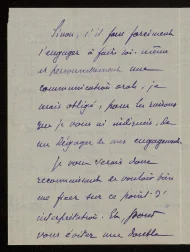 Sinon, s'il faut forcément
s'engager à faire soi-même
et personnellement une
communication orale, je
serais obligé, pour les raisons
que je vous ai indiquées, de
me dégager de mes engagements.
Je vous serais donc
reconnaissant de vouloir bien
me fixer sur ce point d'
interprétation. En
vous éviter une double